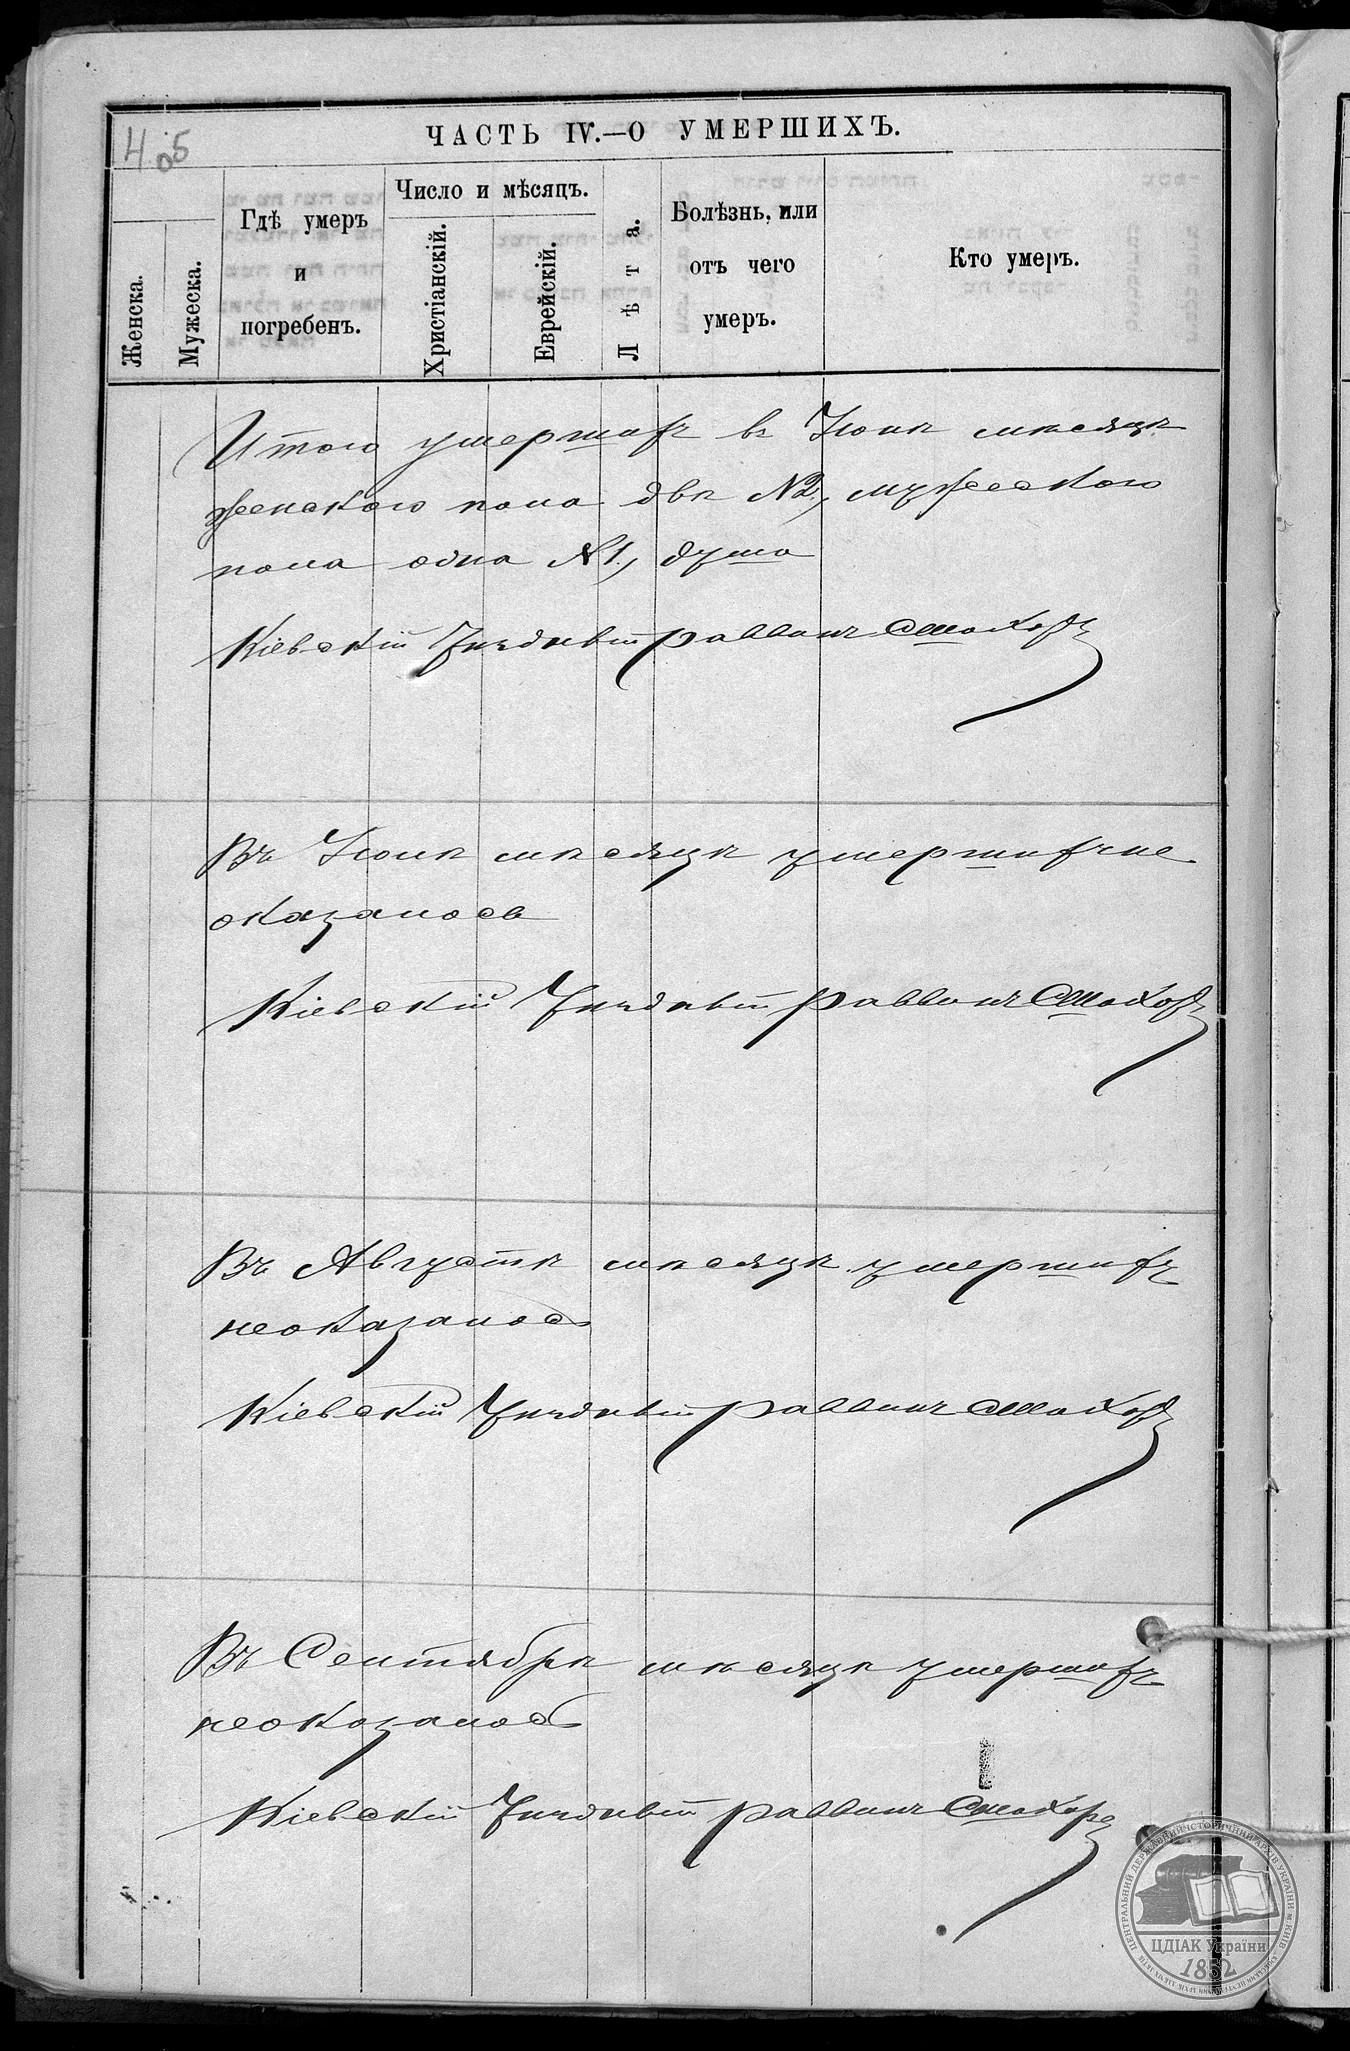 405
ЧАСТЬ IV.—О УМЕРШИХЪ.
Женска.
Мужеска.
Гдѣ умеръ
и
погребенъ.
Число и мѣсяцъ.
Христіанскій.
Еврейскій.
Лѣта.
Болѣзнь, или
отъ чего
умеръ.
Кто умеръ.
Итого умершихъ въ Іюнѣ мѣсяцѣ
женского пола двѣ №2, мужеского
пола одна №1, душа
Кіевскій Уѣздный раввинъ
Въ Іюлѣ мѣсяцѣ умершихъ не
оказалось
Кіевскій Уѣздный раввинъ
Въ Августѣ мѣсяцѣ умершихъ
неоказалось
Кіевскій Уѣздный раввинъ
Въ Сентябрѣ мѣсяцѣ умершихъ
неоказалось
Кіевскій Уѣздный раввинъ
ЦЕНТРАЛЬНИЙ ДЕРЖАВНИЙ ІСТОРИЧНИЙ АРХІВ УКРАЇНИ М. КИЇВ
ЦДІАК України
1852